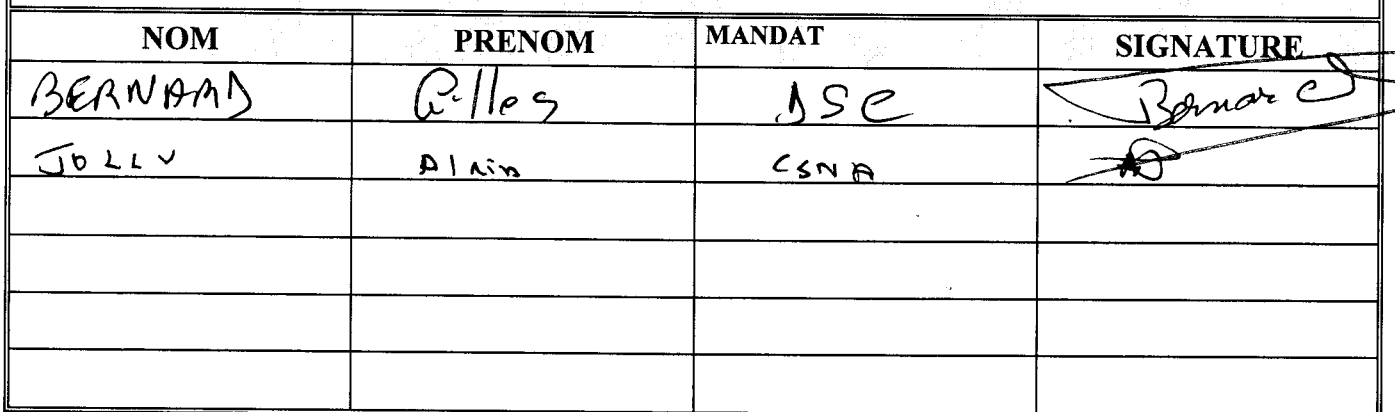 NOM PRENOM MANDAT SIGNATURE
BERNARD Gilles DSC Bernard
JOLLY Alain CSNA